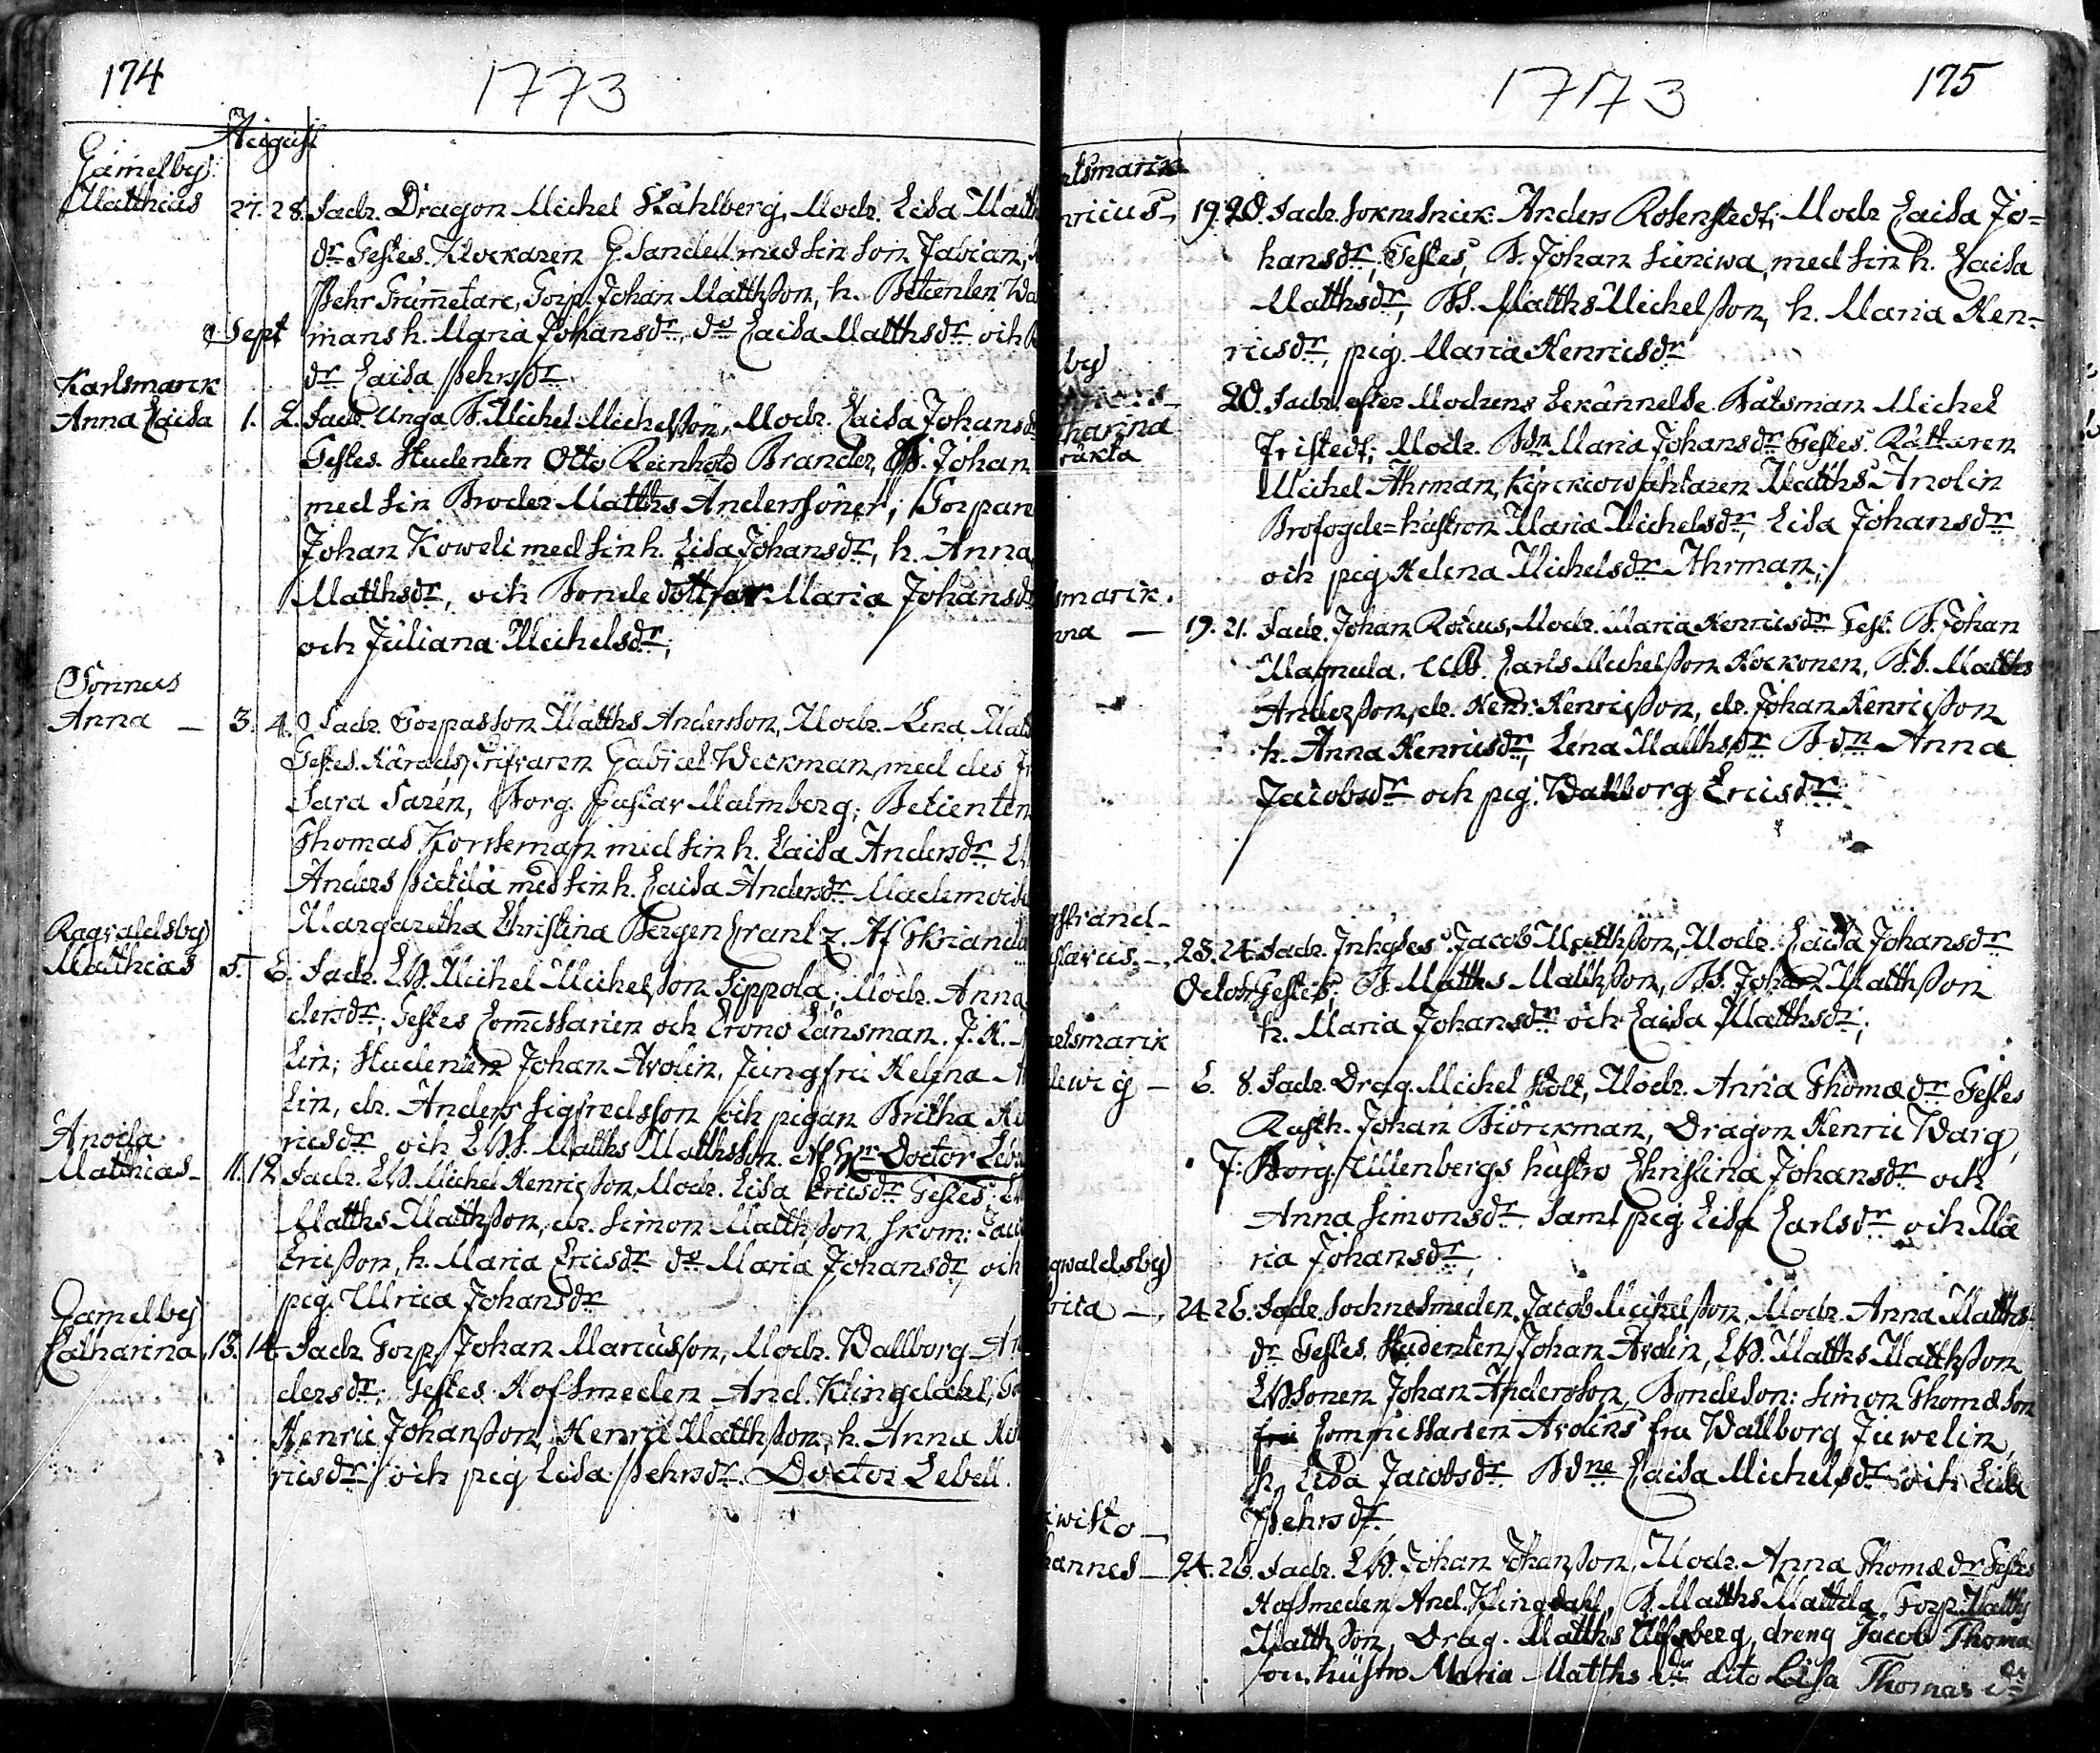 174
1773
August
Gamelby
Matthias 27. 28. Fadr. Dragon Michel Ståhlberg, Modr. Lisa Matth
dr Testes. Klockaren G. Sandell med sin Son Fabian,
Pehr Trummetare, Torp. Johan Matthsson, h. Betienten Wa
Sept mans h. Maria Johansdr, do Caisa Matthsdr och
Karlsmarck dr Caisa Pehrsdr
Anna Caisa 1. 2. Fadr. Unga B. Michel Michelsson, Modr. Caisa Johansdr
Testes. Studenten Otto Reinhold Brander, B. Johan
med sin Broder Matths Anderssöner; Torpare
Johan Koweli med sin h. Lisa Johansdr, h. Anna
Matthsdr, och Bonde dottrar Maria Johansdr
och Juliana Michelsdr;
Sonnäs
Anna — 3. 4. Fadr. Torpasson Matths Andersson, Modr. Lena Mats
Testes. Häradsskrifvaren Gabriel Weckman med des
Sara Sarén, Borg. Gustav Malmberg; Betienten
Thomas Forsseman med sin h. Caisa Andersdr
Anders Pietilä med sin h. Caisa Andersdr Mademoise
Margaretha Christina Bergen Crantz. Af
Ragvaldsby
Matthias 5. 6. Fadr. LB. Michel Michelsson Sippola; Modr. Anna
dersdr; Testes Commissarien och Crono Länsman. J. H.
lin; Studenten Johan Avolin, Jungfru Helena A
lin, dr. Anders Sigfredsson och pigan Britha He
Anoila ricsdr och LBS. Matths Matthsson. Af Hr Doctor Lebe
Matthias — 11. 12. Fadr. LB. Michel Henricsson, Modr. Lisa Ericsdr Testes
Matths Matthsson, dr. Simon Matthsson, Skom:
Ericsson, h. Maria Ericsdr do Maria Johansdr, och
Gamelby pig. Ulrica Johansdr
Catharina 13. 14. Fadr Torp. Johan Marcusson, Modr. Wallborg An
dersdr; Testes. Hofsmeden And. Klingdahl;
Henric Johansson, Henric Matthsson, h. Anna He
ricsdr och pig Lisa Pehrsdr. Doctor Lebell.
1773
175
lsmarck
nricus — 19. 20. Fadr. Soknesnick: Anders Rosenstedt; Modr Caisa Jo=
hansdr; Testes, B. Johan Suniwa med sin h. Caisa
Matthsdr; BS. Matths Michelsson, h. Maria Hen-
ricsdr, pig. Maria Henricsdr
by
tharina 20. Fadr. efter Modrens bekännelse. Båtsman Michel
Fristedt; Modr. Bdn Maria Johansdr Testes. Rättaren
Michel Ahrman, Kyrckiowäktaren Matths Avolin
Brofogde=hustron Maria Michelsdr, Lisa Johansdr
och pig. Helena Michelsdr Ahrman;
smarck.
nna — 19. 21. Fadr. Johan Rotcus, Modr. Maria Henricsdr Test. B. Johan
Magnula, UB. Carls Michelsson Kockonen, B.S. Matths
Andersson, dr. Henr. Henricsson, dr. Johan Henricsson
h. Anna Henricsdr; Lena Matthsdr Bdn Anna
Jacobsdr och pig. Wallborg Ericsdr
gstrand —
stavus. — 23. 24. Fadr. Inhyses Jacob Matthsson, Modr. Caisa Johansdr
Octobr Testes; B. Matths Matthsson, BS. Johan Matthsson
h. Maria Johansdr och Caisa Matthsdr;
relsmarck
dewig — 6. 8. Fadr. Drag. Michel Stolt, Modr. Anna Thomædr Testes
Rusth. Johan Biörckman, Dragon Henric Warg,
F: Borg. Ullenbergs hustro Christina Johansdr och
Anna Simonsdr Samt pig. Lisa Carlsdr och Ma
ria Johansdr,
gwaldsby
rita — 24. 26. Fadr. Socknesmeden Jacob Michelsson, Modr. Anna Matths-
dr Testes. Studenten Johan Avolin, LB. Matths Matthsson
LBSonen Johan Andersson, Bondeson: Simon Thomæson
Commissarien Avolins fru Wallborg Juwelin,
h. Lisa Jacobsdr Bdne Caisa Michelsdr och Lisa
Pehrsdr
iwisto —
hannes — 24. 26. Fadr. LB. Johan Johansson, Modr. Anna Thomædr Testes
Hofsmeden And. Klingdahl, B. Matths Mattila, Torp. Matths
Matthsson, Drag. Matths Ulfsberg, dreng Jacob Thoma
son. hustro Maria Matths dr dito Lisa Thomas dr